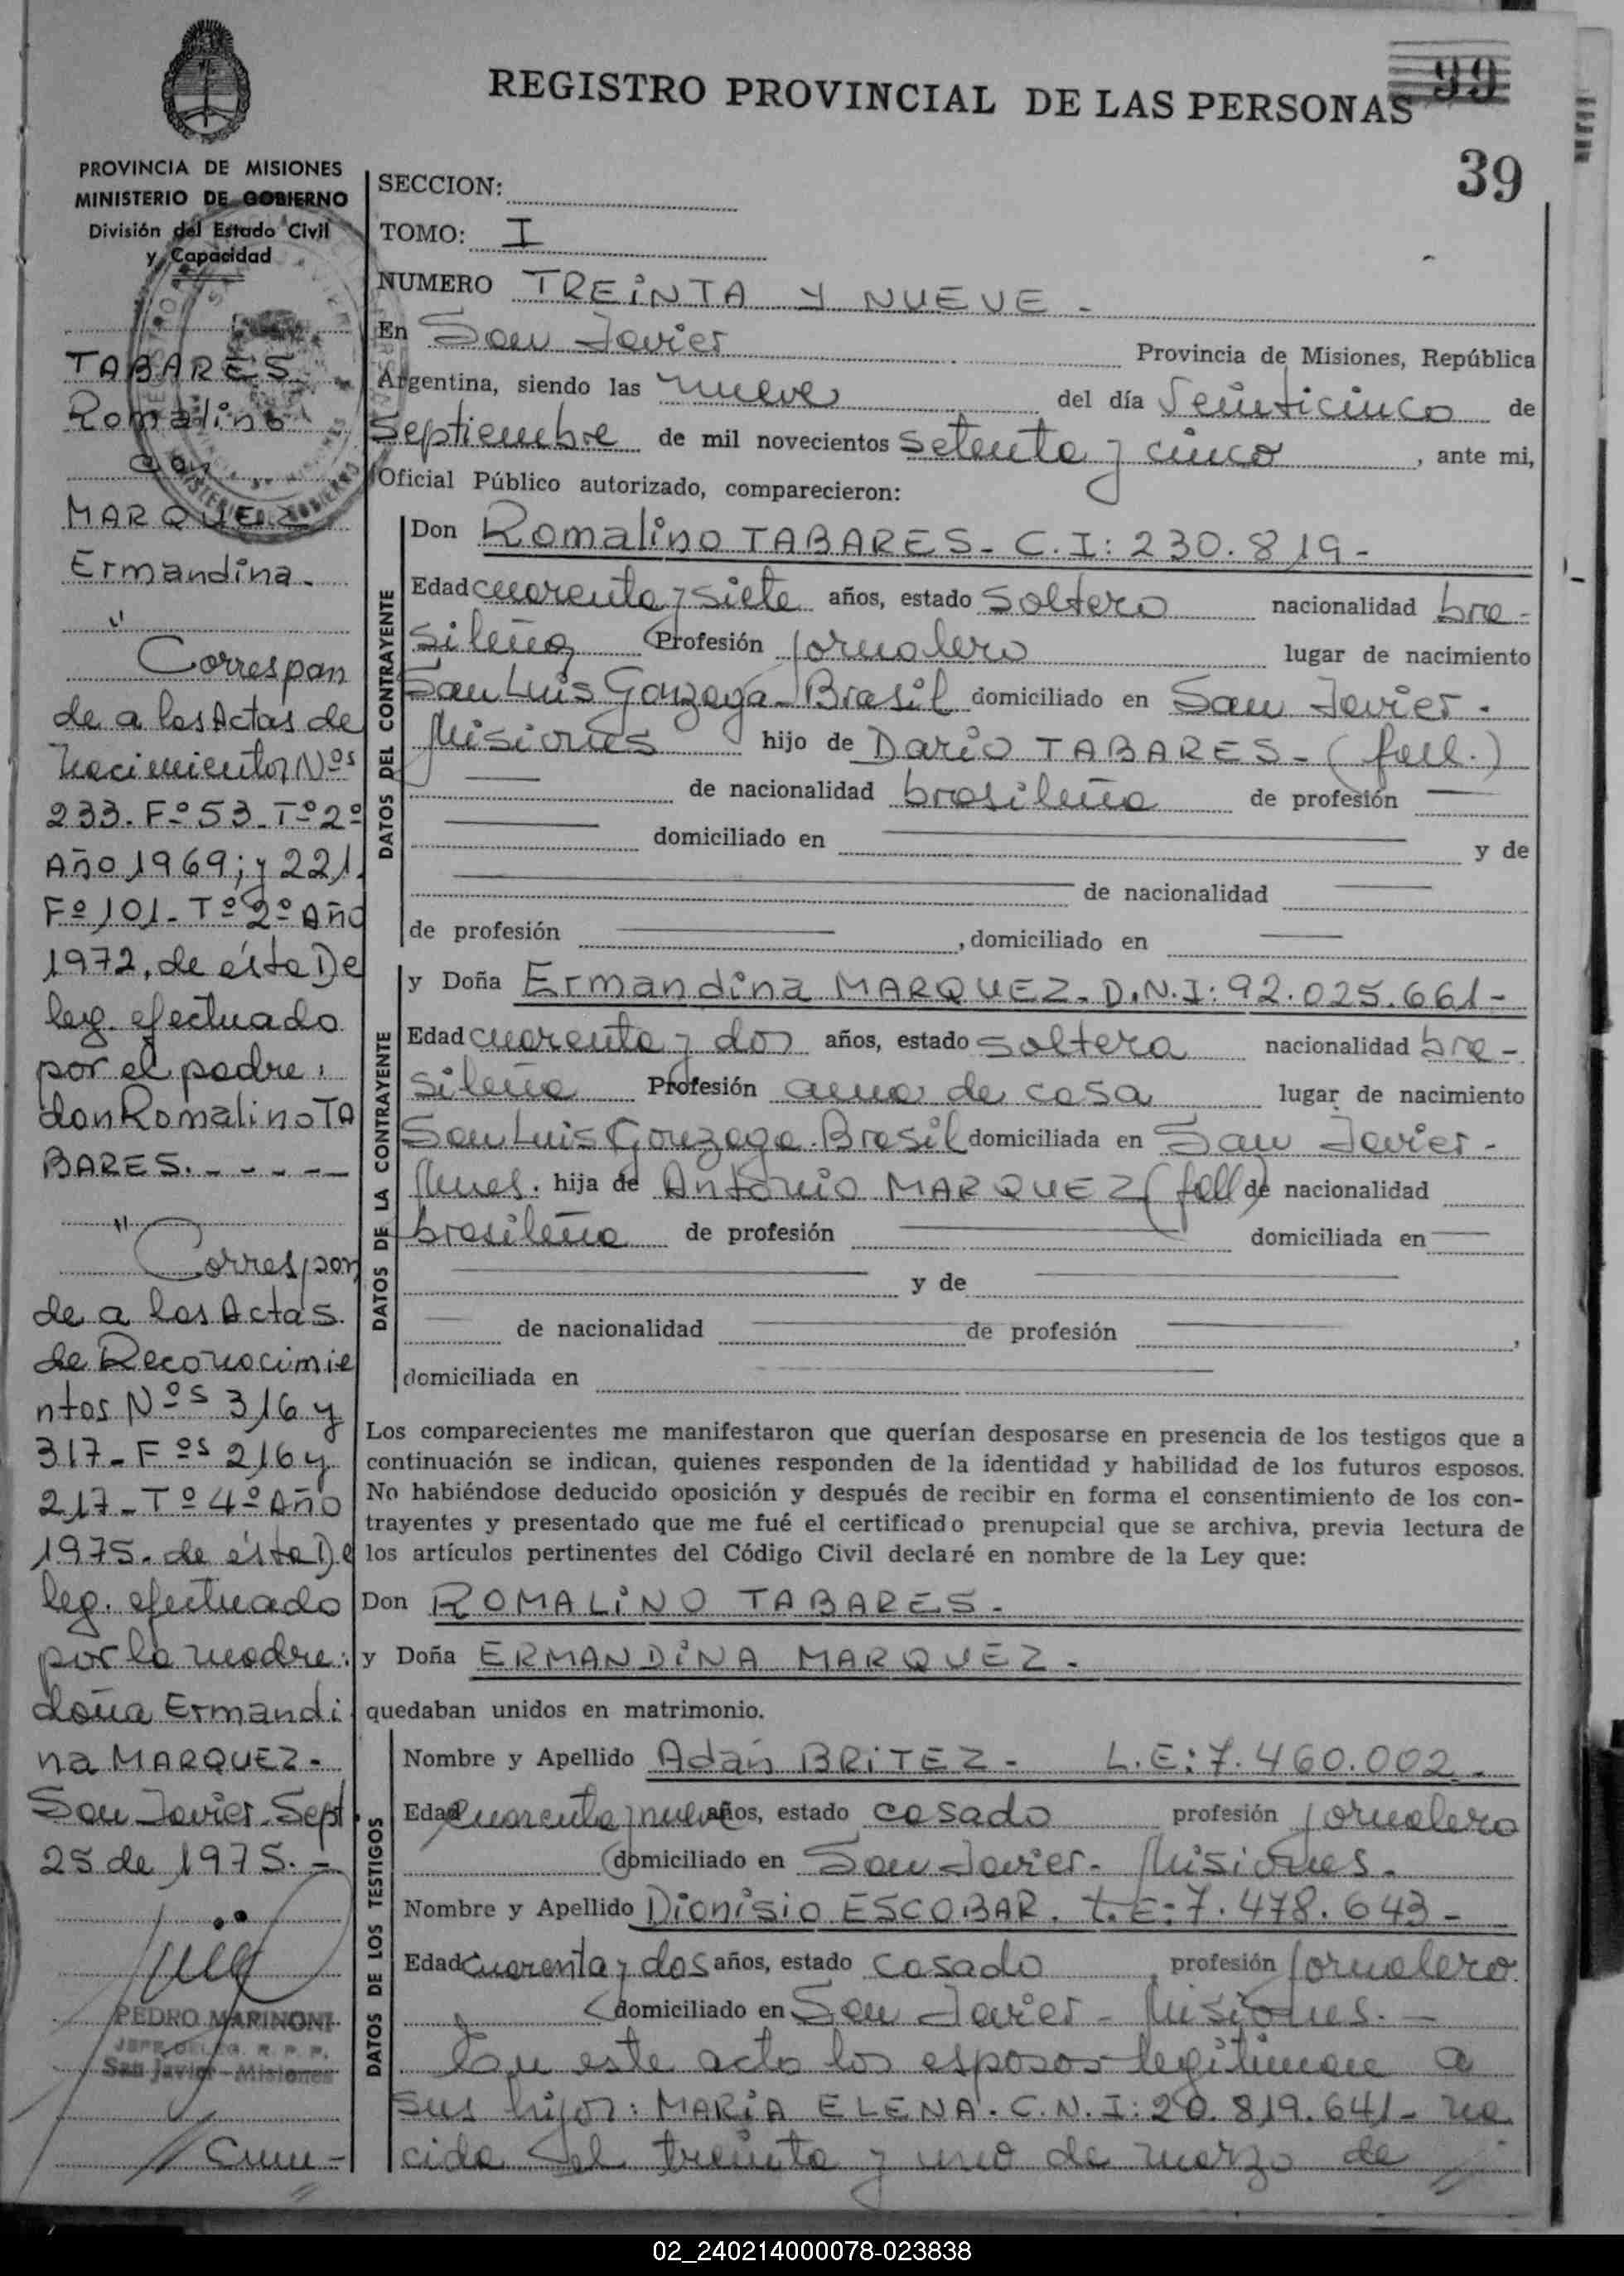 REGISTRO PROVINCIAL DE LAS PERSONAS
99
39
PROVINCIA DE MISIONES
MINISTERIO DE GOBIERNO
División del Estado Civil
y Capacidad
TABARES
Romalino
con
MARQUEZ
Ermandina.
"Correspon
de a las Actas de
Nacimientos Nºs
233. Fº 53. Tº 2º
Año 1969; y 221.
Fº 101- Tº 2º Año
1972, de ésta De
leg. efectuado
por el padre,
don Romalino TA
BARES. - - - -
"Correspon
de a las Actas
de Reconocimie
ntos Nºs 316 y
317- Fºs 216 y
217- Tº 4º Año
1975. de ésta De
leg. efectuado
por la madre:
doña Ermandi
na MARQUEZ-
San Javier. Sept.
25 de 1975. -
PEDRO MARINONI
JEFE DELEG. R. P. P.
San Javier - Misiones
SECCION:
TOMO: I
NUMERO TREINTA Y NUEVE -
En San Javier Provincia de Misiones, República
Argentina, siendo las nueve del día Veinticinco de
Septiembre de mil novecientos setenta y cinco, ante mi,
Oficial Público autorizado, comparecieron:
DATOS DEL CONTRAYENTE
Don Romalino TABARES- C.I: 230.819-
Edad cuarenta y siete años, estado soltero nacionalidad bra-
sileña Profesión jornalero lugar de nacimiento
San Luis Gonzaga- Brasil domiciliado en San Javier-
Misiones hijo de Darío TABARES- (fall.)
de nacionalidad brasileña de profesión
domiciliado en y de
de nacionalidad
de profesión , domiciliado en
DATOS DE LA CONTRAYENTE
y Doña Ermandina MARQUEZ- D.N.I: 92.025.661-
Edad cuarenta y dos años, estado soltera nacionalidad bra-
sileña Profesión ama de casa lugar de nacimiento
San Luis Gonzaga. Brasil domiciliada en San Javier-
Mnes. hija de Antonio MARQUEZ (fall) de nacionalidad
brasileña de profesión domiciliada en
y de
de nacionalidad de profesión ,
domiciliada en
Los comparecientes me manifestaron que querían desposarse en presencia de los testigos que a
continuación se indican, quienes responden de la identidad y habilidad de los futuros esposos.
No habiéndose deducido oposición y después de recibir en forma el consentimiento de los con-
trayentes y presentado que me fué el certificado prenupcial que se archiva, previa lectura de
los artículos pertinentes del Código Civil declaré en nombre de la Ley que:
Don ROMALINO TABARES-
y Doña ERMANDINA MARQUEZ-
quedaban unidos en matrimonio.
DATOS DE LOS TESTIGOS
Nombre y Apellido Adán BRITEZ- L.E: 7.460.002-
Edad cuarenta y nueve años, estado casado profesión jornalero
domiciliado en San Javier- Misiones.
Nombre y Apellido Dionisio ESCOBAR. L.E: 7.478.643-
Edad cuarenta y dos años, estado casado profesión jornalero
domiciliado en San Javier- Misiones. -
En este acto los esposos legitiman a
sus hijos: MARIA ELENA. C.N.I: 20.819.641- na
cida el treinta y uno de marzo de
02_240214000078-023838